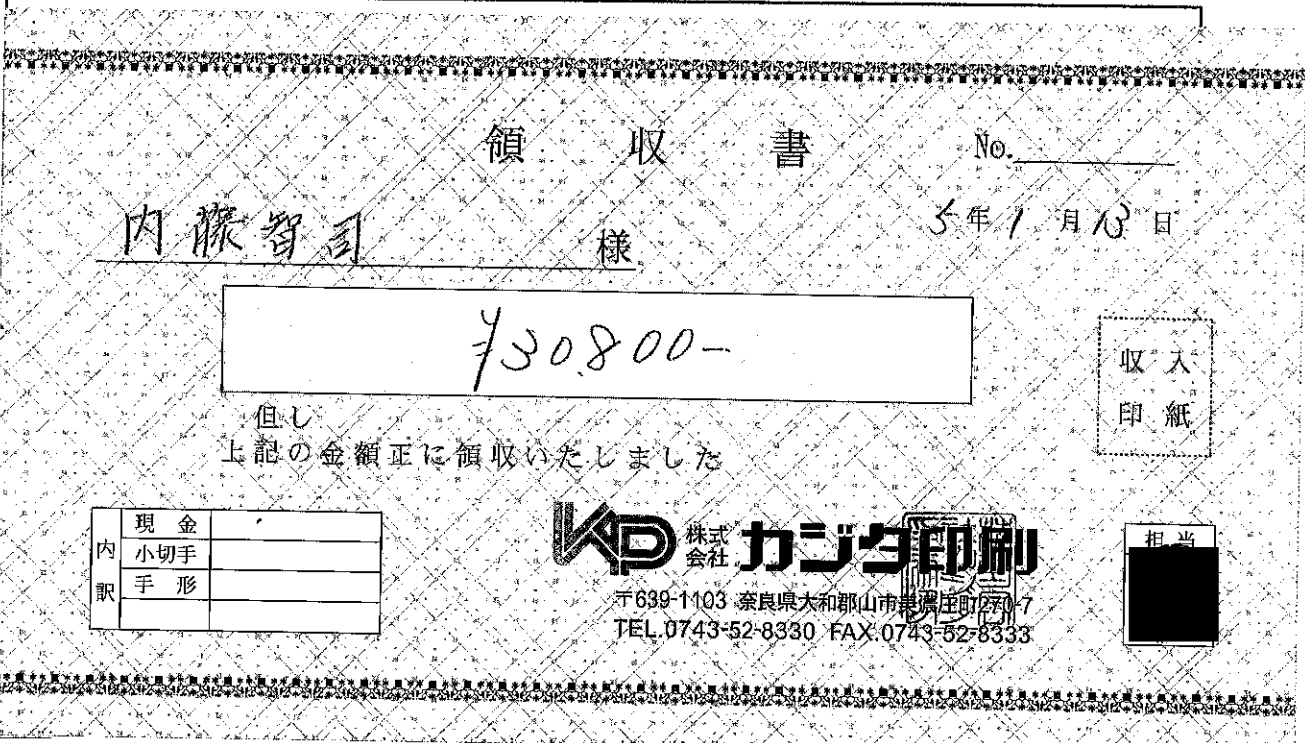 領収書 No.
5年1月13日
内藤智司 様
¥30,800-
但し
上記の金額正に領収いたしました
収入
印紙
内訳
現金
小切手
手形
KP 株式会社 カジタ印刷
担当
〒639-1103 奈良県大和郡山市美濃庄町270-7
TEL.0743-52-8330 FAX.0743-52-8333